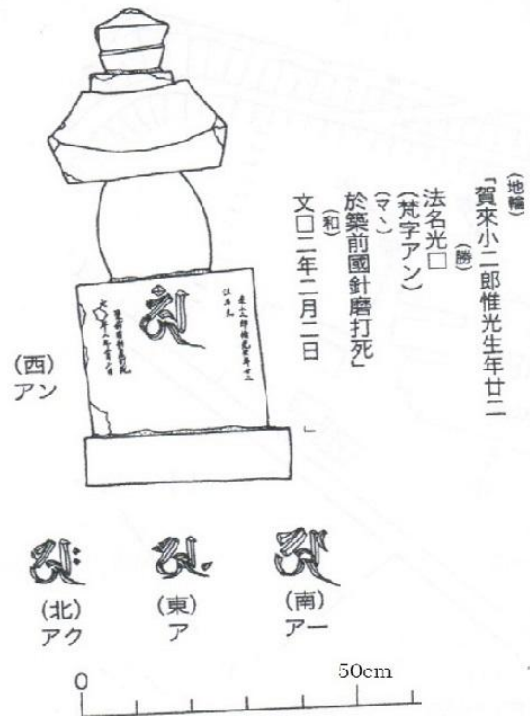 (地輪)
「賀來小二郎惟光生年廿二
(勝)
法名光□
(梵字アン)
(マヽ)
於築前國針磨打死」
(和)
文□二年二月二日
」
(西)
アン
(北)
アク
(東)
ア
(南)
アー
0
50cm